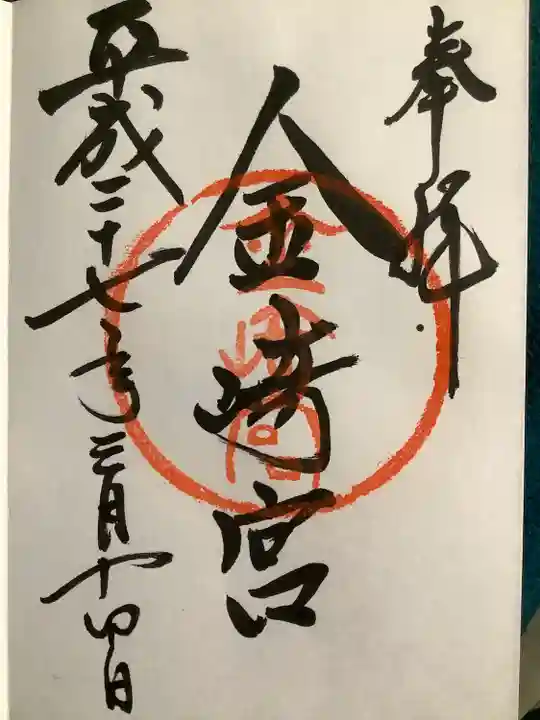 奉拝
金崎宮
平成二十七年三月十四日